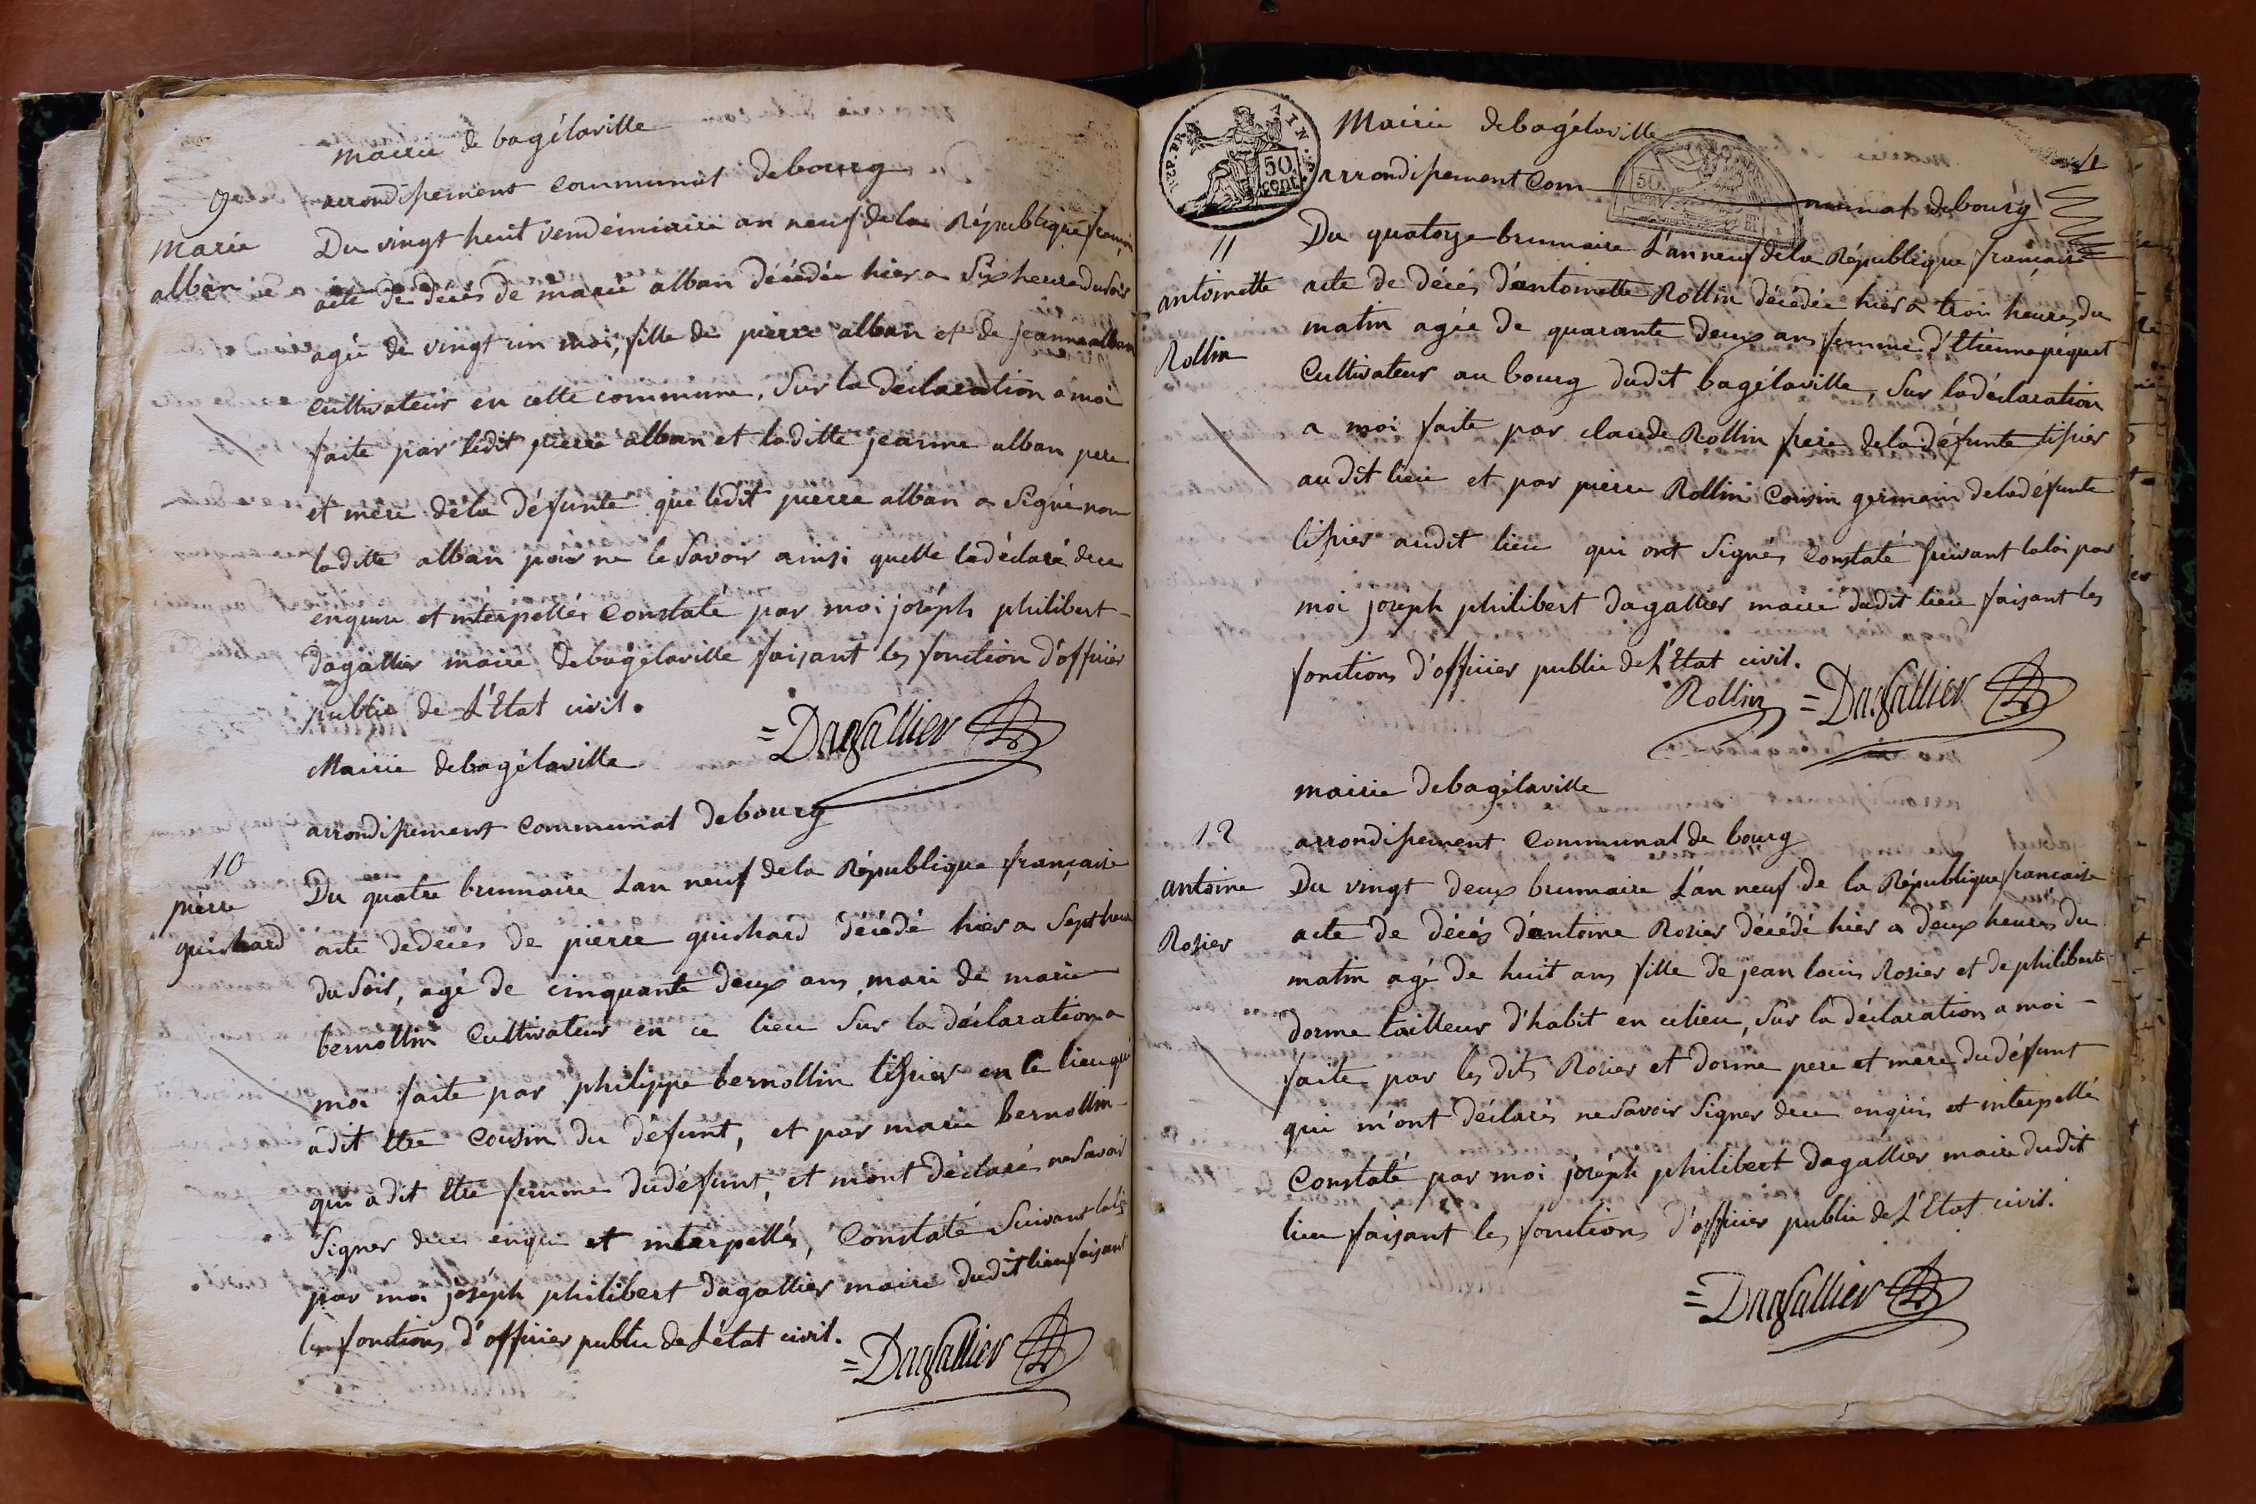 mairie de bagélaville
arrondissement communal de bourg
9
Marie
alban
Du vingt huit vendémiaire an neuf de la République françoise
acte de décés de marie alban décédée hier a six heure du soir
agée de vingt un moi, fille de pierre alban et de jeanne alban
cultivateur en cette commune. Sur la déclaration a moi
faite par ledit pierre alban et laditte jeanne alban pere
et mere de la défunte que ledit pierre alban a signé non
laditte alban pour ne le savoir ainsi quelle la déclaré de ce
enquise et interpellée Constaté par moi joséph philibert
dagallier maire de bagélaville faisant les fonction d'officier
public de L'Etat civil.
=Dagallier
Mairie de bagélaville
arrondissement communal de bourg
10
pierre
guichard
Du quatre brumaire Lan neuf de la République française
acte de decés de pierre guichard décédé hier a sept heure
du soir, agé de cinquante deux ans mari de marie
bernollin cultivateur en ce lieu Sur la déclaration a
moi faite par philippe bernollin tissier en ce lieu qui
a dit etre cousin du défunt, et par marie bernollin
qui a dit etre femme du défunt, et m'ont déclaré ne savoir
signer de ce enquis et interpellés, Constaté suivant la loi
par moi joséph philibert dagallier maire dudit lieu faisant
les fonctions d'officier public de L'etat civil.
=Dagallier
REP. FR.
50
cent.
Mairie de bagélaville
arrondissement Com munal de bourg
50
11
antoinette
Rollin
Du quatorze brumaire L'an neuf de la République française
acte de décés d'antoinette Rollin décédée hier a trois heures du
matin agée de quarante deux ans femme d'Etienne péquet
Cultivateur au bourg dudit bagélaville, Sur la déclaration
a moi faite par claude Rollin frere de la défunte tissier
audit lieu et par pierre Rollin Cousin germain de la défunte
tissier audit lieu qui ont signés Constaté suivant la loi par
moi joséph philibert dagallier maire dudit lieu faisant les
fonctions d'officier public de L'Etat civil.
Rollin =Dagallier
mairie de bagélaville
arrondissement Communal de bourg
12
antoine
Rosier
Du vingt deux brumaire L'an neuf de la République francaise
acte de décés d'antoine Rosier décédé hier a deux heures du
matin agé de huit ans fille de jean louis Rosier et de philiberte
dorme tailleur d'habit en ce lieu, Sur la déclaration a moi
faite par les dits Rosier et dorme pere et mere du défunt
qui m'ont déclarés ne savoir signer de ce enquis et interpellé
Constaté par moi joséph philibert dagallier maire dudit
lieu faisant les fonctions d'officier public de L'Etat civil.
=Dagallier